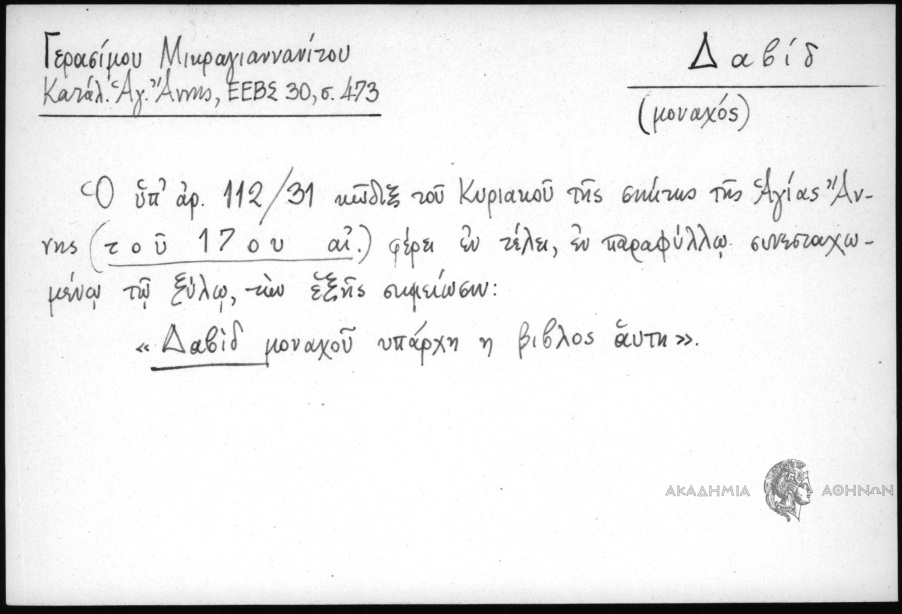 Γερασίμου Μικραγιαννανίτου
Κατάλ. Ἁγ. Ἄννης, ΕΕΒΣ 30, σ. 473
Δαβίδ
(μοναχός)
Ὁ ὑπ' ἀρ. 112/31 κῶδιξ τοῦ Κυριακοῦ τῆς σκήτης τῆς Ἁγίας Ἄν-
νης (τοῦ 17ου αἰ.) φέρει ἐν τέλει, ἐν παραφύλλῳ συνεσταχω-
μένῳ τῷ ξύλῳ, τὴν ἑξῆς σημείωσιν:
«Δαβὶδ μοναχοῦ υπάρχη η βιβλος αὕτη».
ΑΚΑΔΗΜΙΑ ΑΘΗΝΩΝ